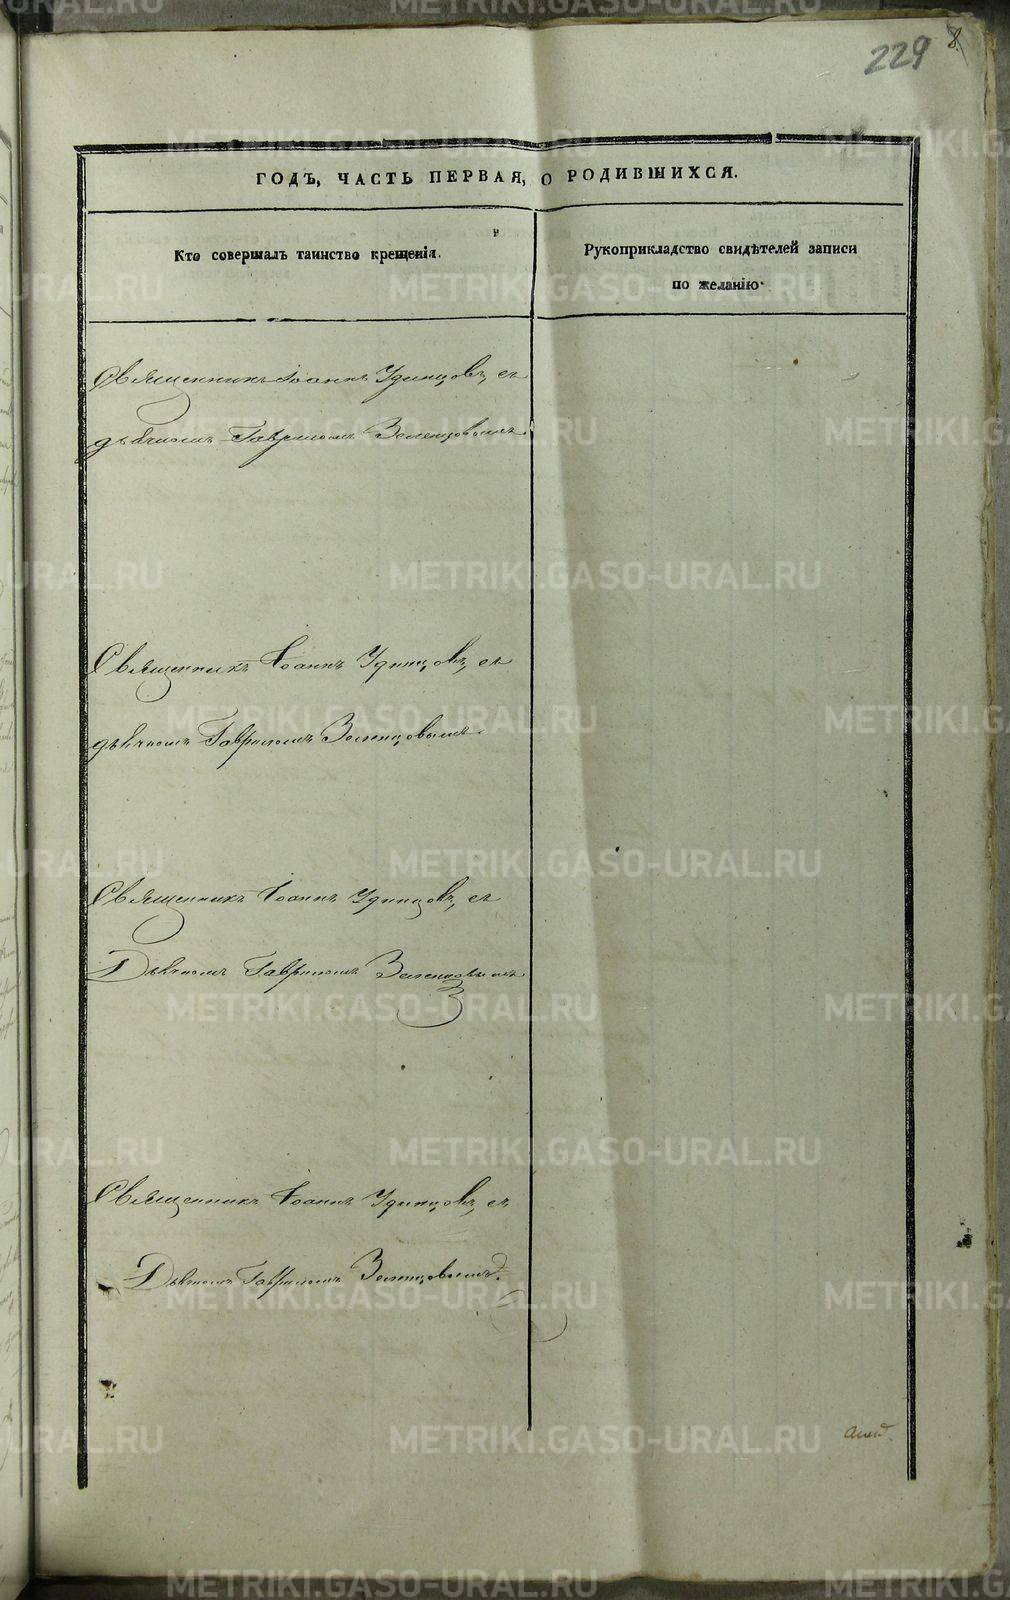 229 8.
ГОДЪ, ЧАСТЬ ПЕРВАЯ, О РОДИВШИХСЯ.
Кто совершалъ таинство крещенія.
Рукоприкладство свидѣтелей записи
по желанію.
Священникъ Іоаннъ Удинцовъ, съ
дьячкомъ Гавриломъ Зеленцовымъ.
Священникъ Іоаннъ Удинцовъ, съ
дьячкомъ Гавриломъ Зеленцовымъ.
Священникъ Іоаннъ Удинцовъ, съ
Дьячкомъ Гавриломъ Зеленцовымъ
Священникъ Іоаннъ Удинцовъ, съ
Дьячкомъ Гавриломъ Зеленцовымъ.
METRIKI.GASO-URAL.RU